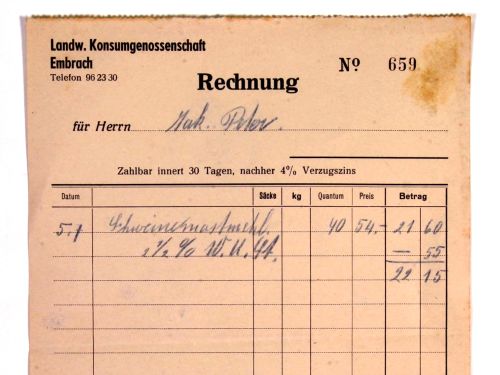 Landw. Konsumgenossenschaft
Embrach
Telefon 96 23 30
Nº 659
Rechnung
für Herrn Jak. Peter.
Zahlbar innert 30 Tagen, nachher 4% Verzugszins
Datum Säcke kg Quantum Preis Betrag
5.1 Schweinemastmehl. 40 54.- 21 60
2½ % W.U.St. — 55
22 15